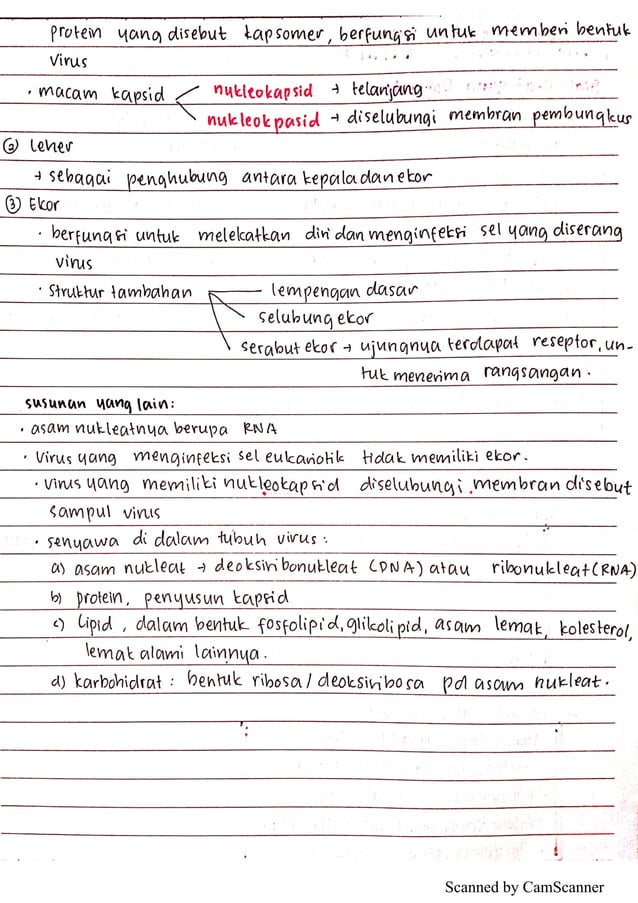 protein yang disebut kapsomer, berfungsi untuk memberi bentuk
virus
· macam kapsid nukleokapsid → telanjang
nukleokpasid → diselubungi membran pembungkus
② Leher
→ sebagai penghubung antara kepala dan ekor
③ Ekor
· berfungsi untuk melekatkan diri dan menginfeksi sel yang diserang
virus
· struktur tambahan lempengan dasar
selubung ekor
serabut ekor → ujungnya terdapat reseptor, un-
tuk menerima rangsangan.
susunan yang lain:
· asam nukleatnya berupa RNA
· Virus yang menginfeksi sel eukariotik tidak memiliki ekor.
· virus yang memiliki nukleokapsid diselubungi membran disebut
sampul virus
· senyawa di dalam tubuh virus:
a) asam nukleat → deoksiribonukleat (DNA) atau ribonukleat (RNA)
b) protein, penyusun kapsid
c) Lipid, dalam bentuk fosfolipid, glikolipid, asam lemak, kolesterol,
lemak alami lainnya.
d) karbohidrat: bentuk ribosa/deoksiribosa pd asam nukleat.
Scanned by CamScanner